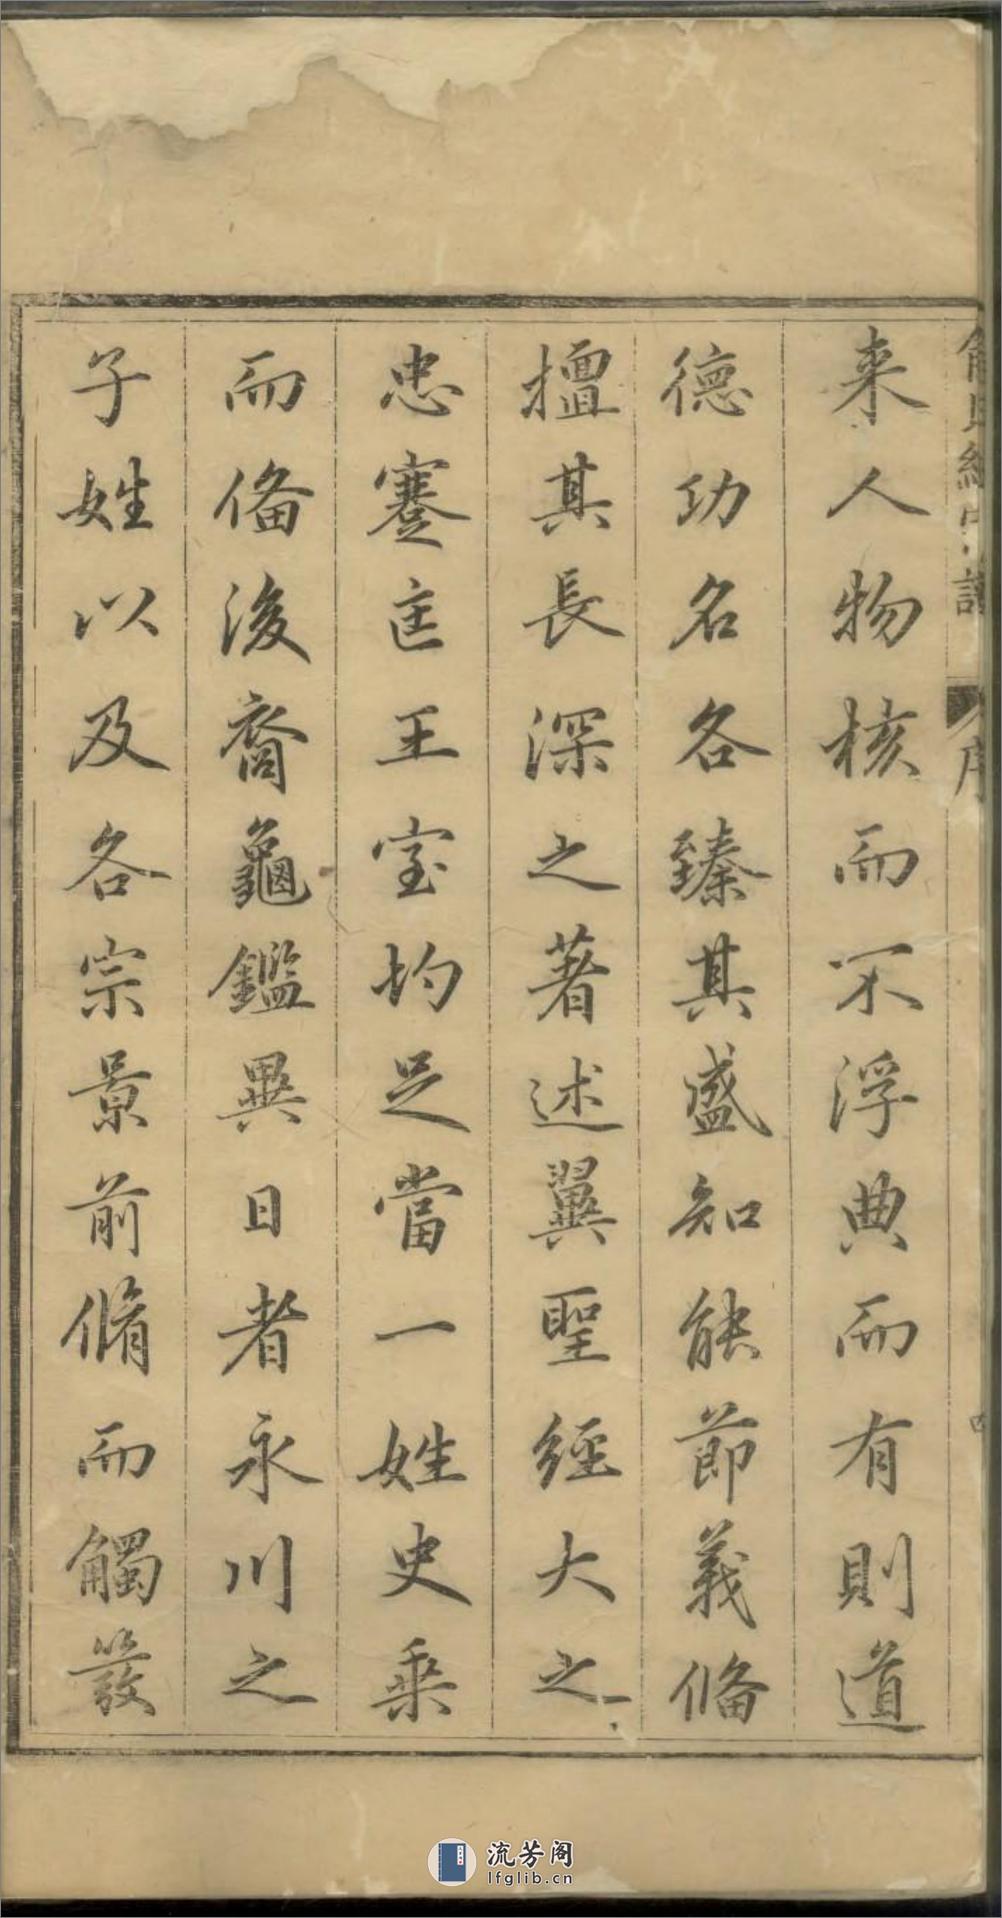 来人物核而不浮典而有則道
德功名各臻其盛知能節義俻
擅其長深之著述翼聖經大之
忠蹇匡王室均足當一姓史乗
而俻後裔龜鑑異日者永川之
子姓以及各宗景前脩而觸發
序
四
流芳阁
lfglib.cn